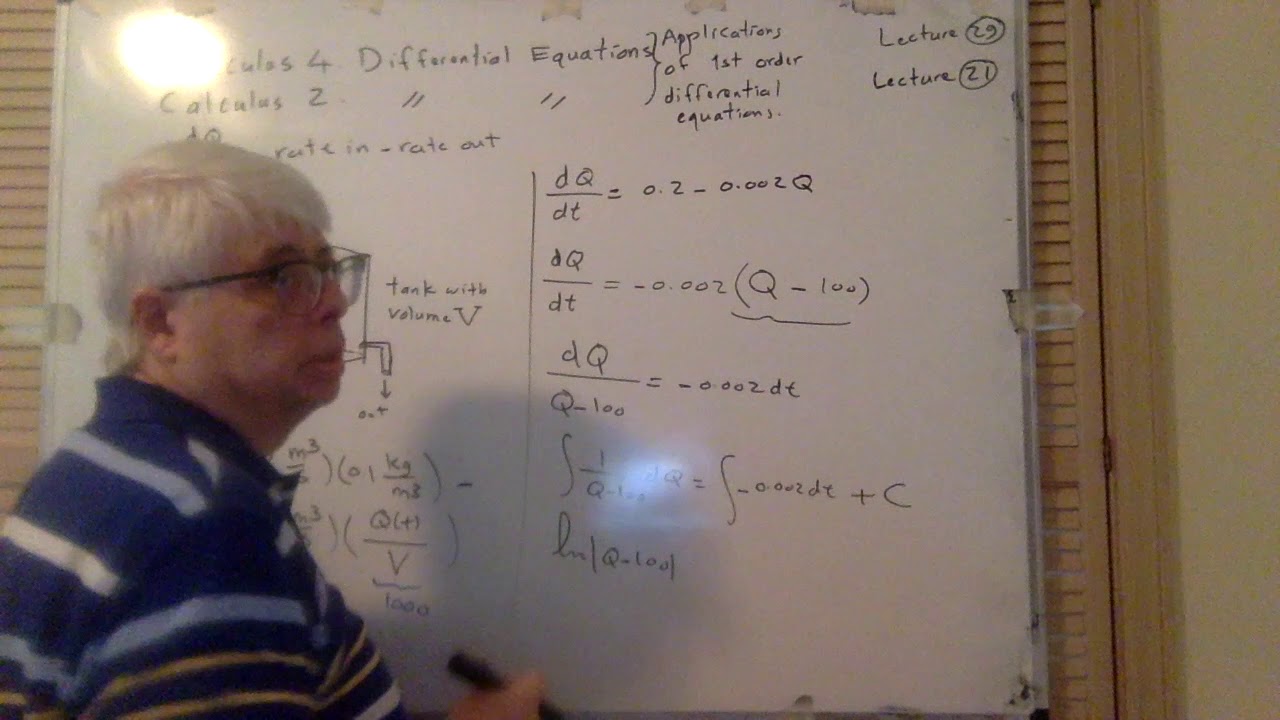 Calculus 4 Differential Equations } Applications of 1st order differential equations. Lecture 29
Calculus 2 〃 〃 Lecture 21
dQ
rate in - rate out
tank with
volume V
out
m³)(0.1 kg/m³) -
m³)(Q(t)/V)
1000
dQ/dt = 0.2 - 0.002Q
dQ/dt = -0.002(Q - 100)
dQ/Q-100 = -0.002dt
∫ 1/Q-100 dQ = ∫ -0.002dt + C
ln|Q-100|